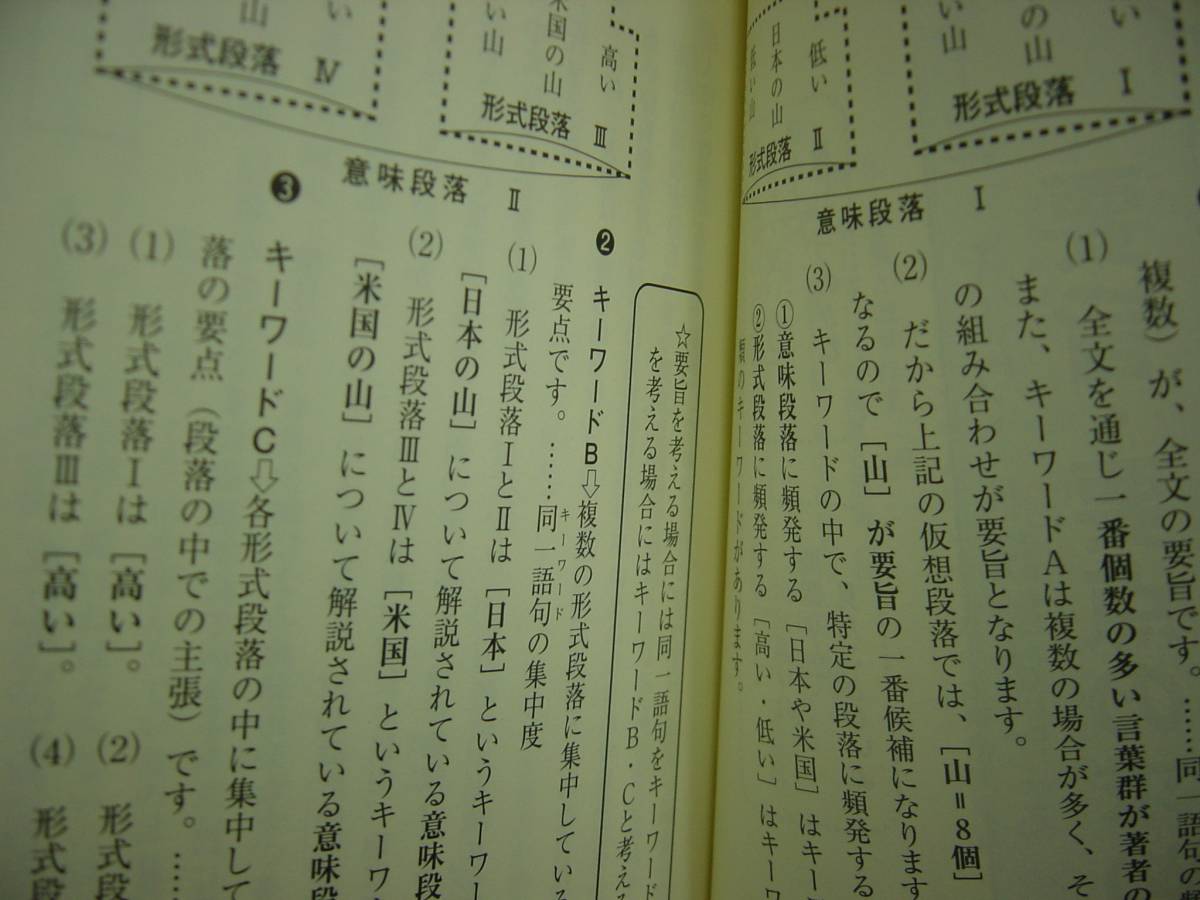 い
の山
い山
形式段落 Ⅰ
低い
日本の山
低い山
形式段落 Ⅱ
意味段落 Ⅰ
複数）が、全文の要旨です。……同一語句の
(1) 全文を通じ一番個数の多い言葉群が著者の
また、キーワードAは複数の場合が多く、そ
の組み合わせが要旨となります。
(2) だから上記の仮想段落では、［山＝8個］
なるので［山］が要旨の一番候補になります
(3) キーワードの中で、特定の段落に頻発する
①意味段落に頻発する［日本や米国］はキー
②形式段落に頻発する［高い・低い］はキーワ
類のキーワードがあります。
高い
米国の山
い山
形式段落 Ⅲ
い
山
い山
形式段落 Ⅳ
意味段落 Ⅱ
☆要旨を考える場合には同一語句をキーワード
を考える場合にはキーワードB・Cと考え
❷ キーワードB⇨複数の形式段落に集中している
要点です。……同一語句の集中度
キーワード
(1) 形式段落ⅠとⅡは［日本］というキーワー
［日本の山］について解説されている意味段
(2) 形式段落ⅢとⅣは［米国］というキーワ
［米国の山］について解説されている意味段
❸ キーワードC⇨各形式段落の中に集中して
落の要点（段落の中での主張）です。……
(1) 形式段落Ⅰは［高い］。 (2) 形式段
(3) 形式段落Ⅲは［高い］。 (4) 形式段